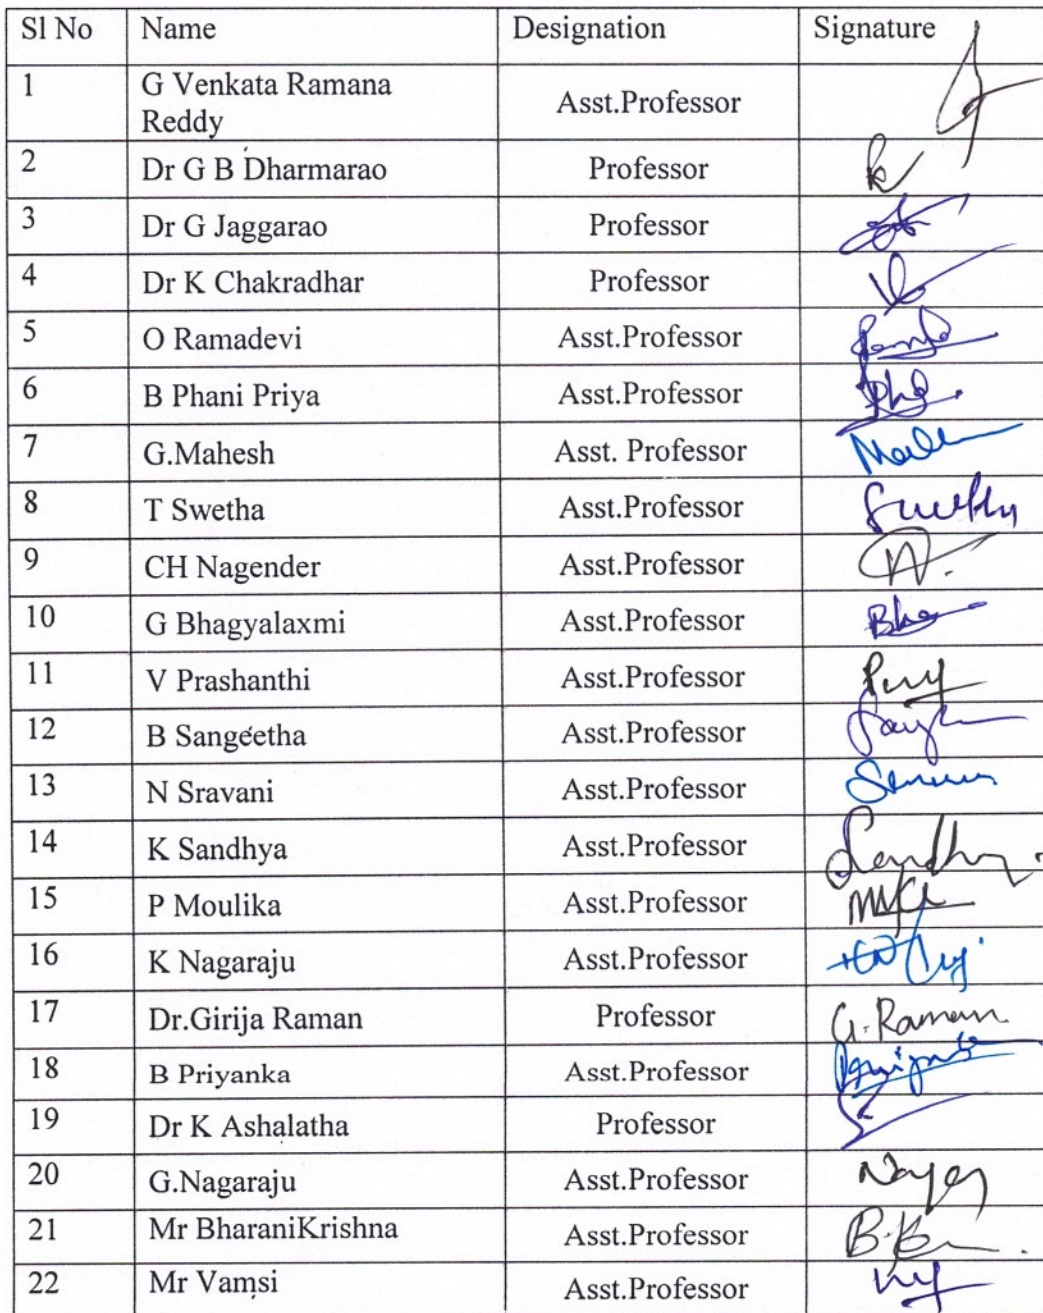 Sl No Name Designation Signature
1 G Venkata Ramana
Reddy Asst.Professor
2 Dr G B Dharmarao Professor
3 Dr G Jaggarao Professor
4 Dr K Chakradhar Professor
5 O Ramadevi Asst.Professor
6 B Phani Priya Asst.Professor
7 G.Mahesh Asst. Professor
8 T Swetha Asst.Professor
9 CH Nagender Asst.Professor
10 G Bhagyalaxmi Asst.Professor
11 V Prashanthi Asst.Professor
12 B Sangeetha Asst.Professor
13 N Sravani Asst.Professor
14 K Sandhya Asst.Professor
15 P Moulika Asst.Professor
16 K Nagaraju Asst.Professor
17 Dr.Girija Raman Professor G. Raman
18 B Priyanka Asst.Professor
19 Dr K Ashalatha Professor
20 G.Nagaraju Asst.Professor
21 Mr BharaniKrishna Asst.Professor
22 Mr Vamsi Asst.Professor